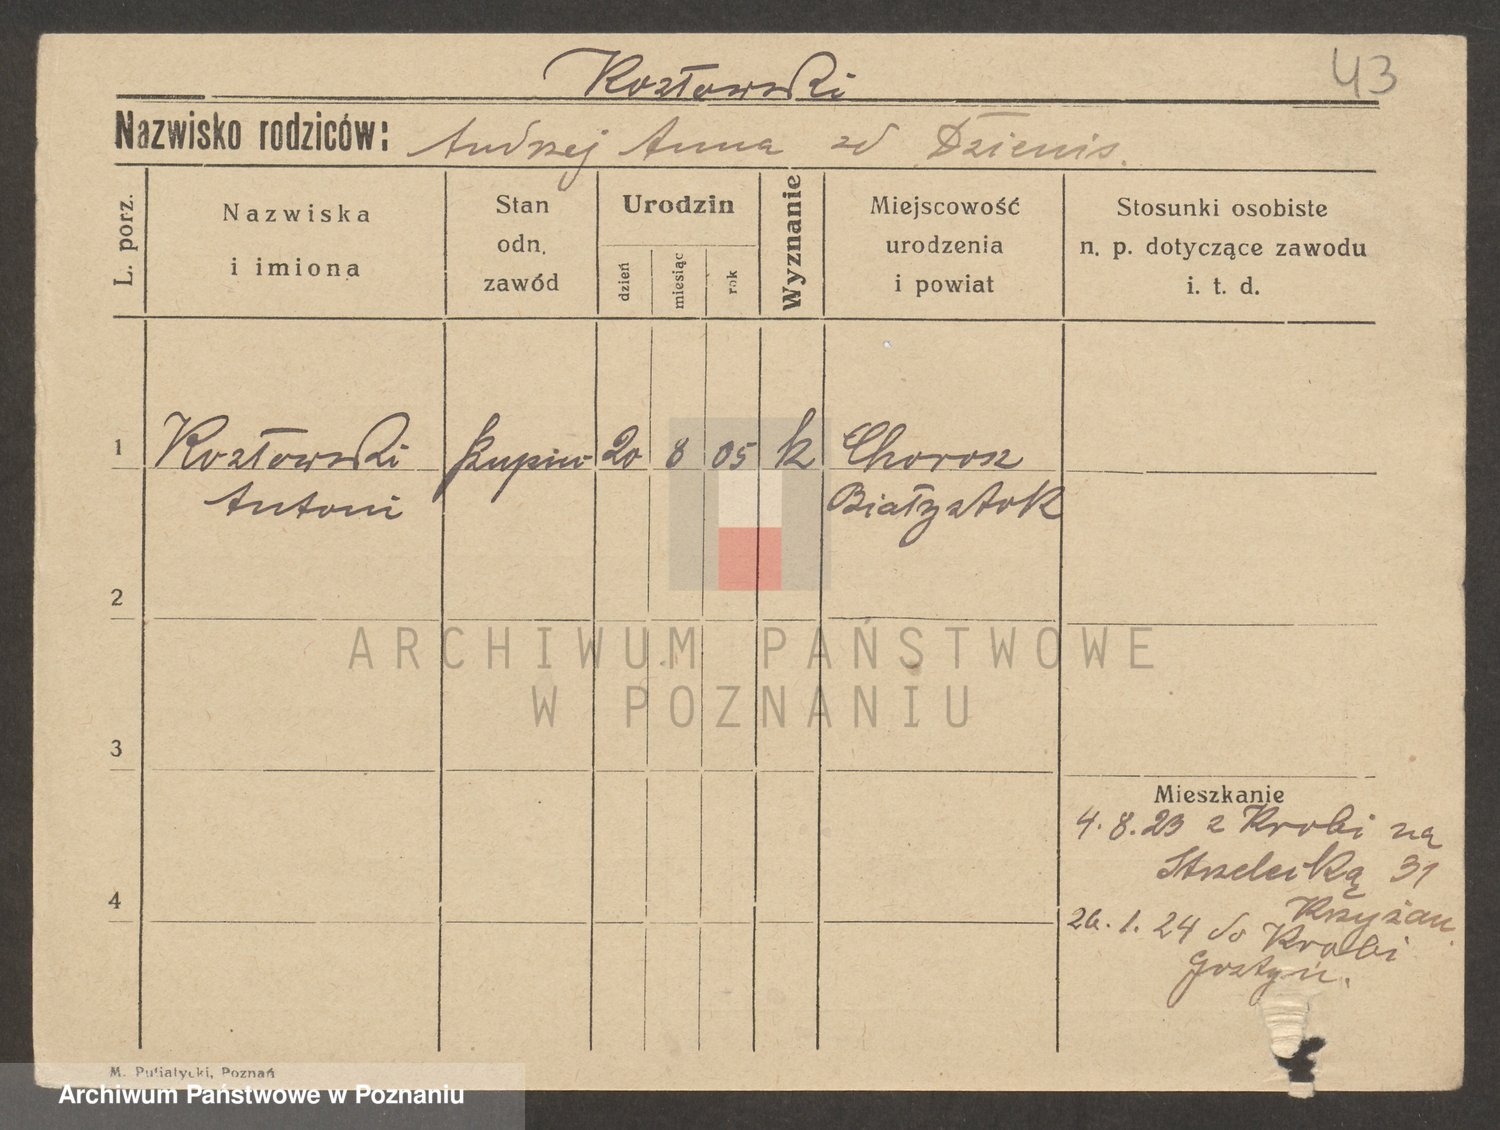 43
Kozłowski
Nazwisko rodziców: Andrzej Anna zd Dzienis.
L. porz.
Nazwiska
i imiona
Stan
odn.
zawód
Urodzin
dzień
miesiąc
rok
Wyznanie
Miejscowość
urodzenia
i powiat
Stosunki osobiste
n. p. dotyczące zawodu
i. t. d.
1 Kozłowski 20 8 05 k Chorosz
Antoni Białystok
2
3
4
Mieszkanie
4. 8. 23 z Krobi na
Strzelecką 31
Krzyżan.
26. 1. 24 do Krobi
Gostyń.
M. Putiatycki, Poznań
ARCHIWUM PAŃSTWOWE
W POZNANIU
Archiwum Państwowe w Poznaniu